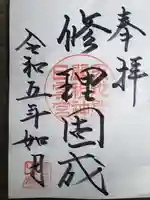 奉拝
修理固成
令和五年如月